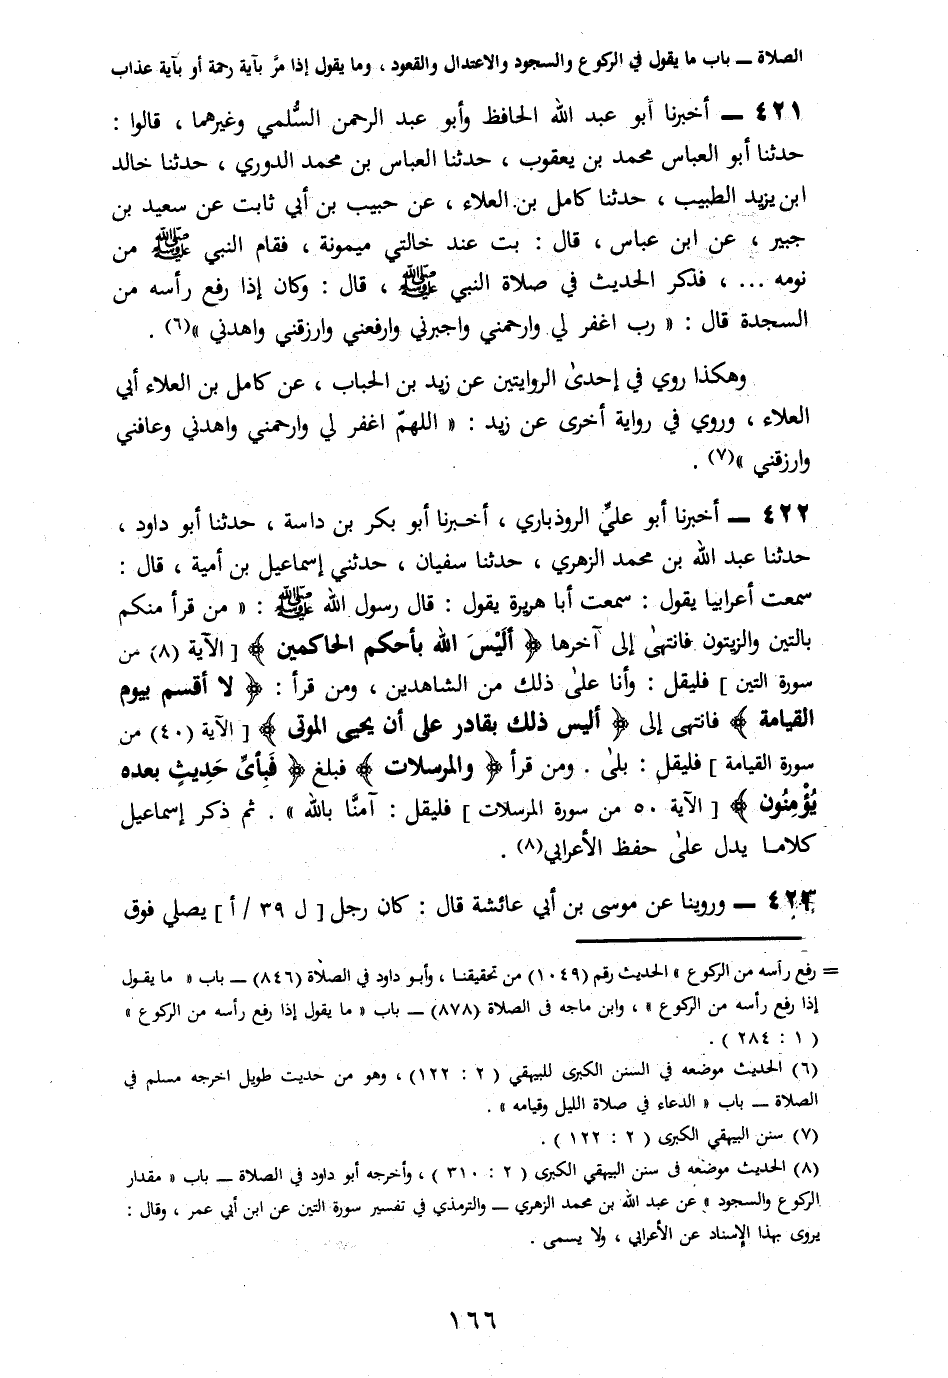 الصلاة ـــ باب ما يقول في الركوع والسجود والاعتدال والقعود ، وما يقول إذا مرَّ بآية رحمة أو بآية عذاب
٤٢١ ـــ أخبرنا أبو عبد الله الحافظ وأبو عبد الرحمن السُّلمي وغيرهما ، قالوا :
حدثنا أبو العباس محمد بن يعقوب ، حدثنا العباس بن محمد الدوري ، حدثنا خالد
ابن يزيد الطبيب ، حدثنا كامل بن العلاء ، عن حبيب بن أبي ثابت عن سعيد بن
جبير ، عن ابن عباس ، قال : بت عند خالتي ميمونة ، فقام النبي ﷺ من
نومه ... ، فذكر الحديث في صلاة النبي ﷺ ، قال : وكان إذا رفع رأسه من
السجدة قال : « رب اغفر لي وارحمني واجبرني وارفعني وارزقني واهدني »(٦) .
وهكذا روي في إحدىٰ الروايتين عن زيد بن الحباب ، عن كامل بن العلاء أبي
العلاء ، وروي في رواية أخرى عن زيد : « اللهمّ اغفر لي وارحمني واهدني وعافني
وارزقني »(٧) .
٤٢٢ ـــ أخبرنا أبو عليٍّ الروذباري ، أخبرنا أبو بكر بن داسة ، حدثنا أبو داود ،
حدثنا عبد الله بن محمد الزهري ، حدثنا سفيان ، حدثني إسماعيل بن أمية ، قال :
سمعت أعرابيا يقول : سمعت أبا هريرة يقول : قال رسول الله ﷺ : « من قرأ منكم
بالتين والزيتون فانتهىٰ إلى آخرها ﴿ أَلَيْسَ الله بأحكم الحاكمين ﴾ [ الآية (٨) من
سورة التين ] فليقل : وأنا علىٰ ذلك من الشاهدين ، ومن قرأ : ﴿ لا أقسم بيوم
القيامة ﴾ فانتهى إلى ﴿ أليس ذلك بقادر على أن يحيى الموتى ﴾ [ الآية (٤٠) من
سورة القيامة ] فليقل : بلىٰ . ومن قرأ ﴿ والمرسلات ﴾ فبلغ ﴿ فَبِأىِّ حَدِيثٍ بعده
يُؤْمِنُون ﴾ [ الآية ٥٠ من سورة المرسلات ] فليقل : آمنَّا بالله » . ثم ذكر إسماعيل
كلاما يدل علىٰ حفظ الأعرابي(٨) .
٤٢٣ ـــ وروينا عن موسى بن أبي عائشة قال : كان رجل [ ل ٣٩ / أ ] يصلي فوق
= رفع رأسه من الركوع » الحديث رقم (١٠٤٩) من تحقيقنا ، وأبو داود في الصلاة (٨٤٦) ـــ باب « ما يقول
إذا رفع رأسه من الركوع » ، وابن ماجه فى الصلاة (٨٧٨) ـــ باب « ما يقول إذا رفع رأسه من الركوع »
( ١ : ٢٨٤ ) .
(٦) الحديث موضعه في السنن الكبرى للبيهقي ( ٢ : ١٢٢ ) ، وهو من حديت طويل اخرجه مسلم في
الصلاة ـــ باب « الدعاء في صلاة الليل وقيامه » .
(٧) سنن البيهقي الكبرى ( ٢ : ١٢٢ ) .
(٨) الحديث موضعه فى سنن البيهقي الكبرى ( ٢ : ٣١٠ ) ، وأخرجه أبو داود في الصلاة ـــ باب « مقدار
الركوع والسجود » عن عبد الله بن محمد الزهري ـــ والترمذي في تفسير سورة التين عن ابن أبي عمر ، وقال :
يروى بهذا الإسناد عن الأعرابي ، ولا يسمى .
١٦٦